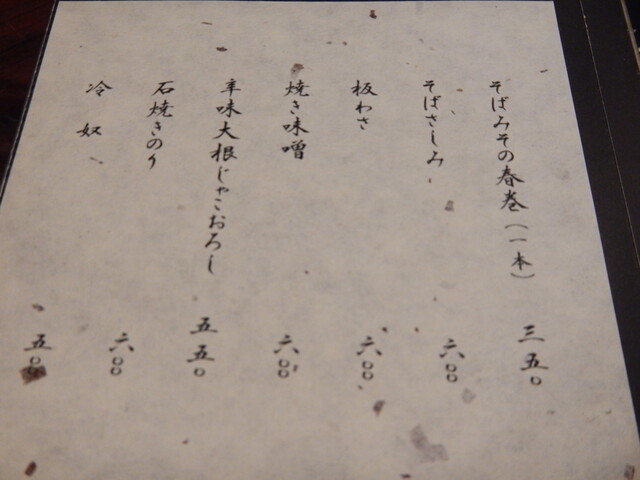 そばみその春巻(一本) 三五〇
そばさしみ 六〇〇
板わさ 六〇〇
焼き味噌 六〇〇
辛味大根じゃこおろし 五五〇
石焼きのり 六〇〇
冷奴 五〇〇